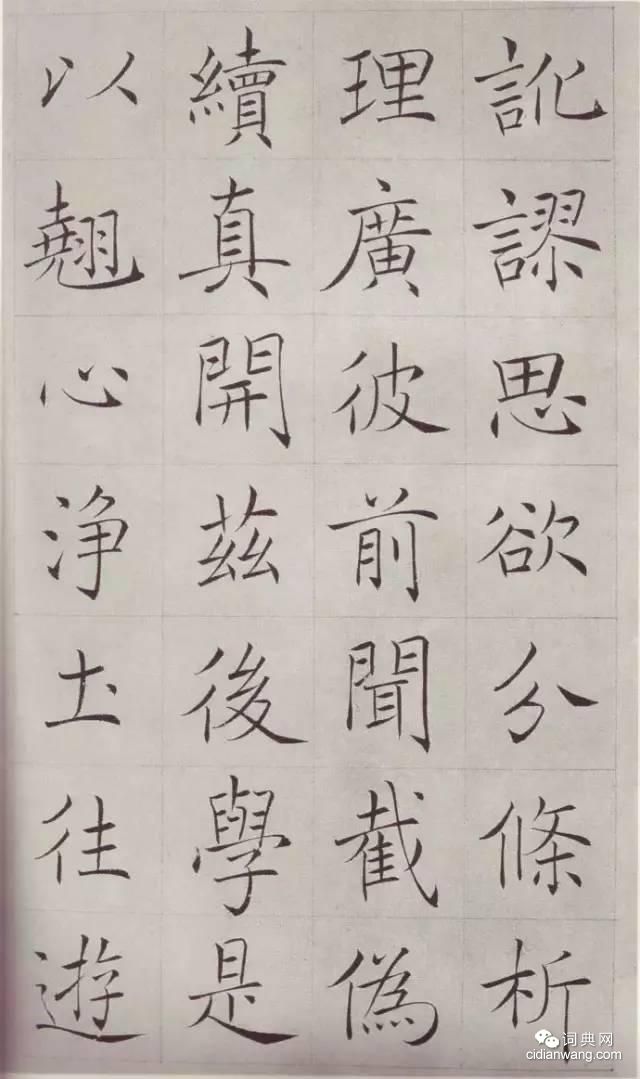 訛謬思欲分條析
理廣彼前聞截偽
續真開茲後學是
以翹心浄土往遊
词典网
cidianwang.com